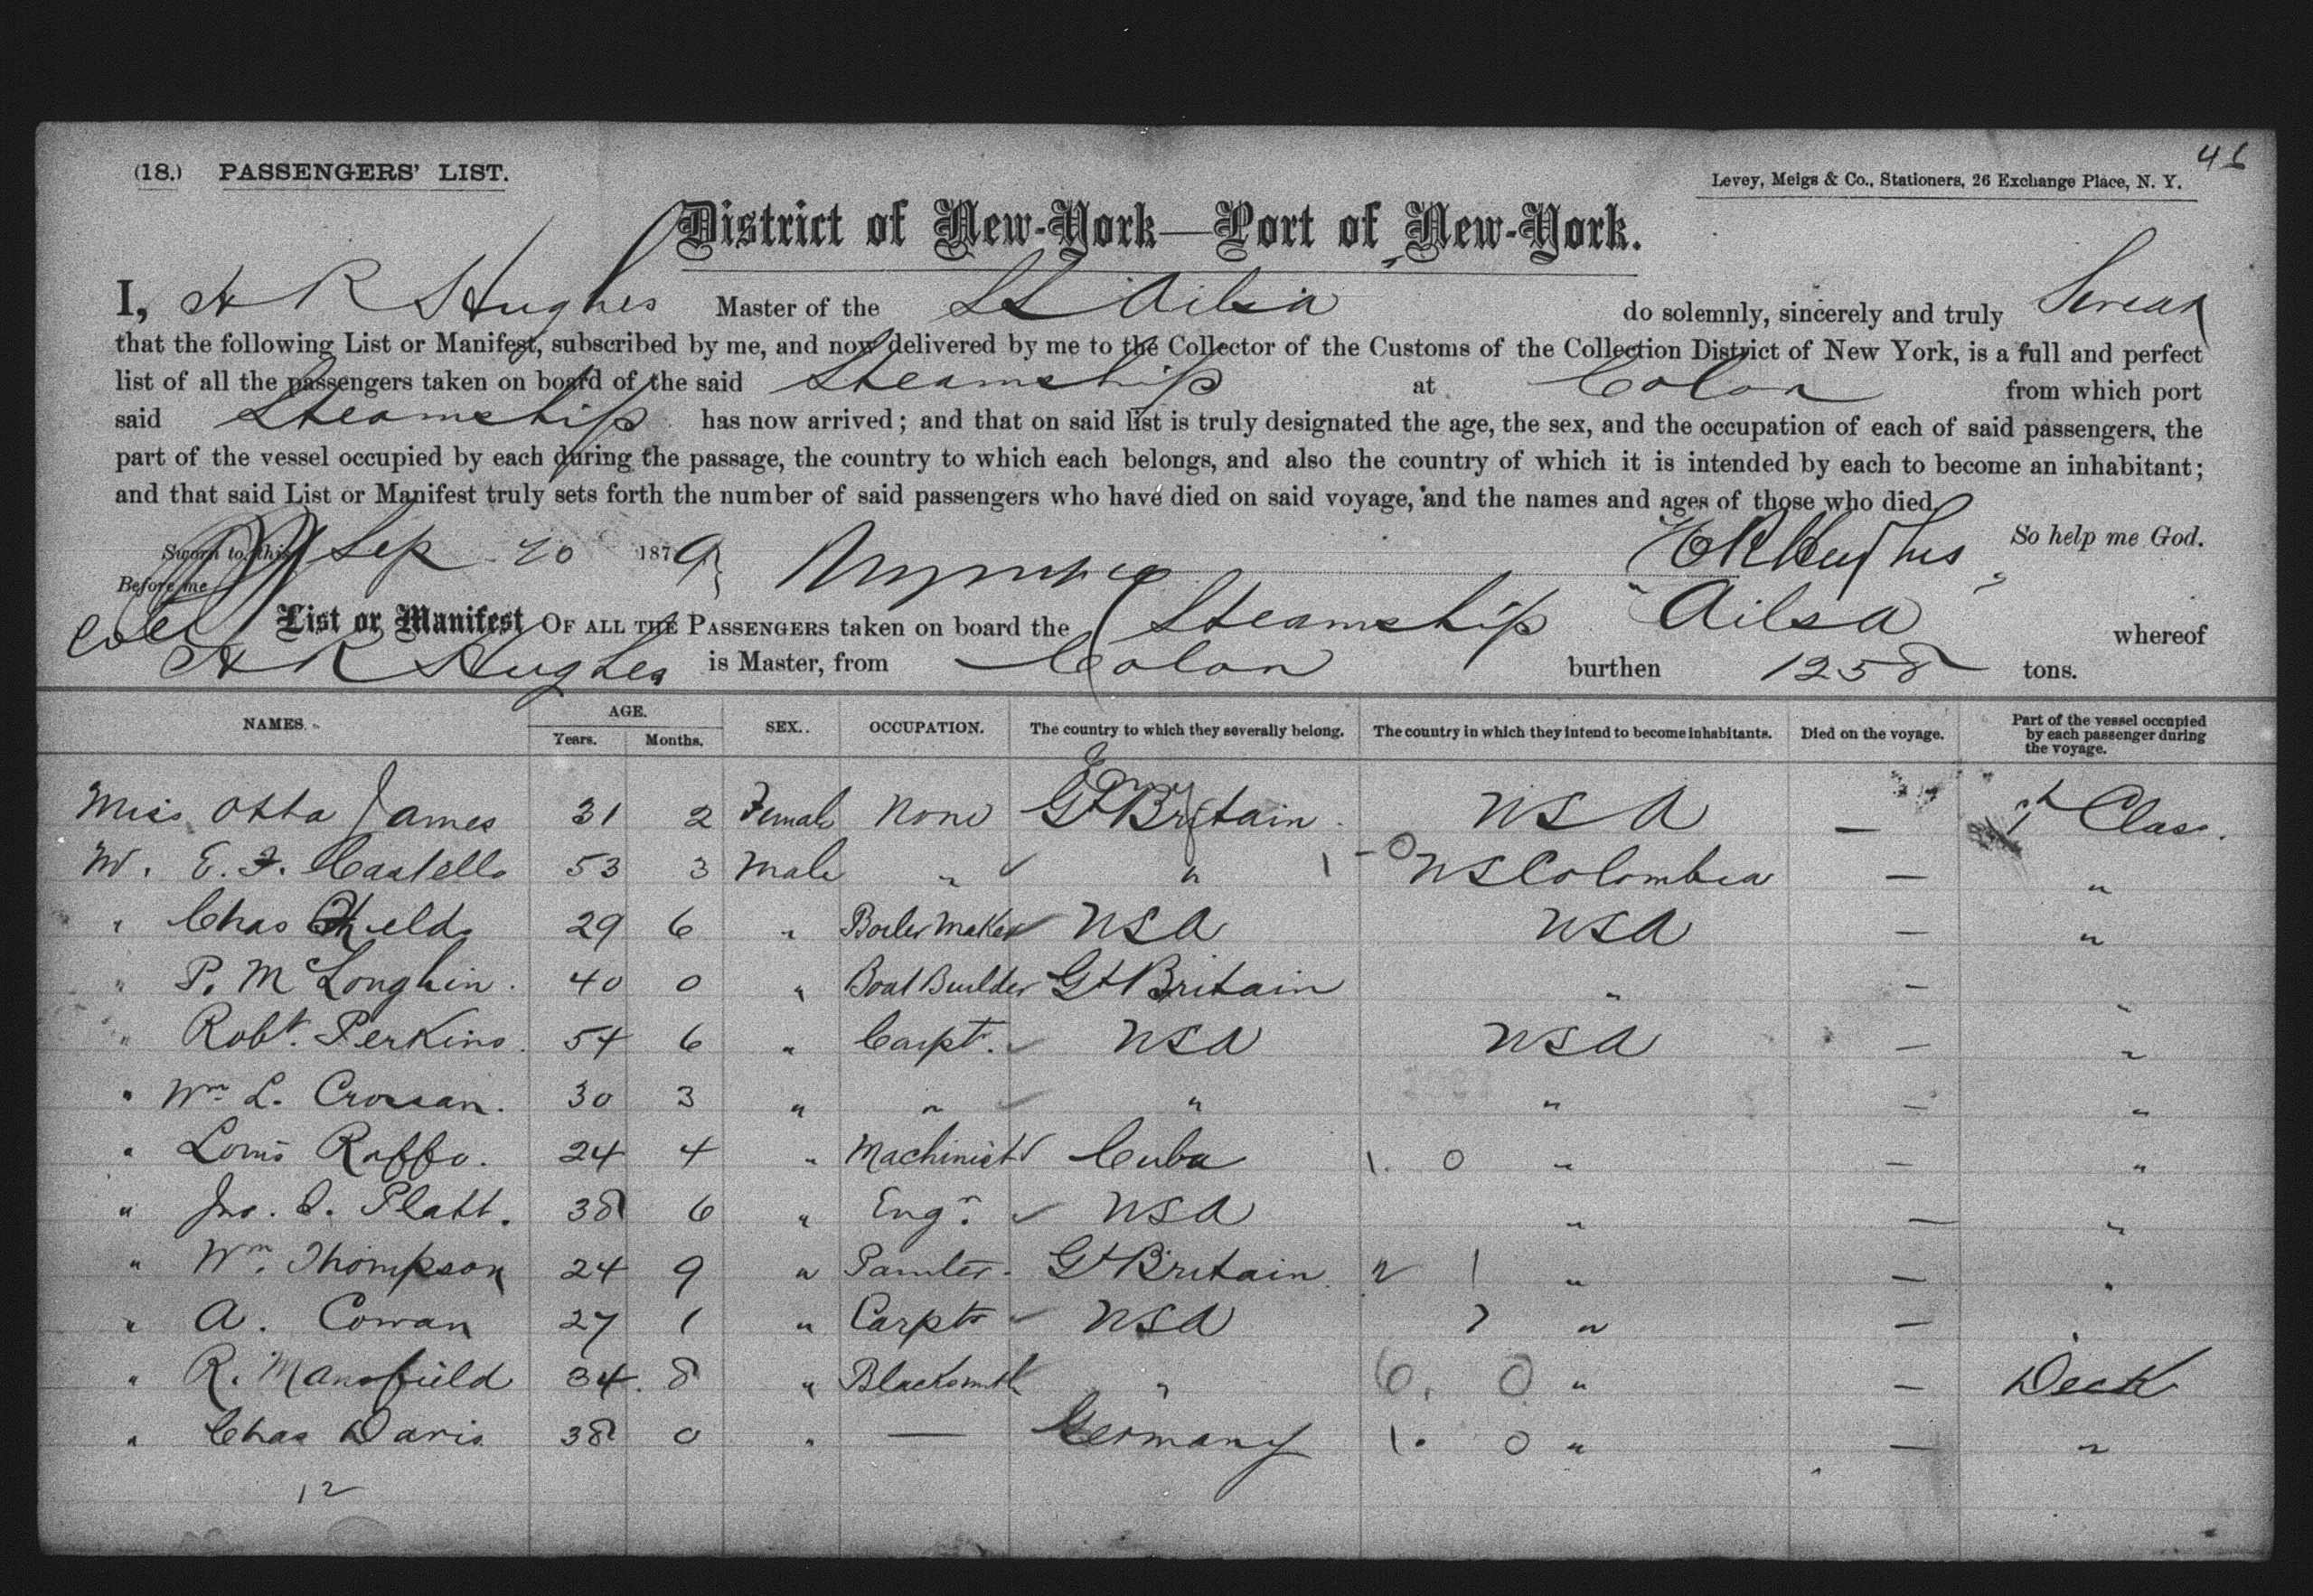 46
(18.) PASSENGERS' LIST.
Levey, Meigs & Co., Stationers, 26 Exchange Place, N. Y.
District of New-York—Port of New-York.
I, H R Hughes Master of the SS Ailsa do solemnly, sincerely and truly Swear
that the following List or Manifest, subscribed by me, and now delivered by me to the Collector of the Customs of the Collection District of New York, is a full and perfect
list of all the passengers taken on board of the said Steamship at Colon from which port
said Steamship has now arrived; and that on said list is truly designated the age, the sex, and the occupation of each of said passengers, the
part of the vessel occupied by each during the passage, the country to which each belongs, and also the country of which it is intended by each to become an inhabitant;
and that said List or Manifest truly sets forth the number of said passengers who have died on said voyage, and the names and ages of those who died.
Sworn to this Sep 20 1879 Hughes So help me God.
Before me
List or Manifest OF ALL THE PASSENGERS taken on board the Steamship "Ailsa" whereof
H R Hughes is Master, from Colon burthen 1258 tons.
NAMES. AGE. Years. Months. SEX. OCCUPATION. The country to which they severally belong. The country in which they intend to become inhabitants. Died on the voyage. Part of the vessel occupied by each passenger during the voyage.
Miss Otta James 31 2 Female None Gt Britain USA — 1st Class.
M. E. F. Castello 53 3 Male " " 1 - 0 US Colombia — "
" Chas 29 6 " Boiler Maker USA USA — "
" P. McLoughin. 40 0 " Boat Builder Gt Britain " — "
" Robt. Perkins. 54 6 " Carpt. USA USA — "
" Wm L. Crossan. 30 3 " " " " — "
" Louis Raffo. 24 4 " Machinist Cuba 1. 0 " — "
" Jno. S. Platt. 38 6 " Engr. USA " — "
" Wm. Thompson 24 9 " Painter Gt Britain 2 1 " — "
" A. Cowan 27 1 " Carptr USA 7 " — "
" R. Mansfield 34. 8 " Blacksmith " 6. 0 " — Deck
" Chas Davis 38 0 " — Germany 1. 0 " — "
12